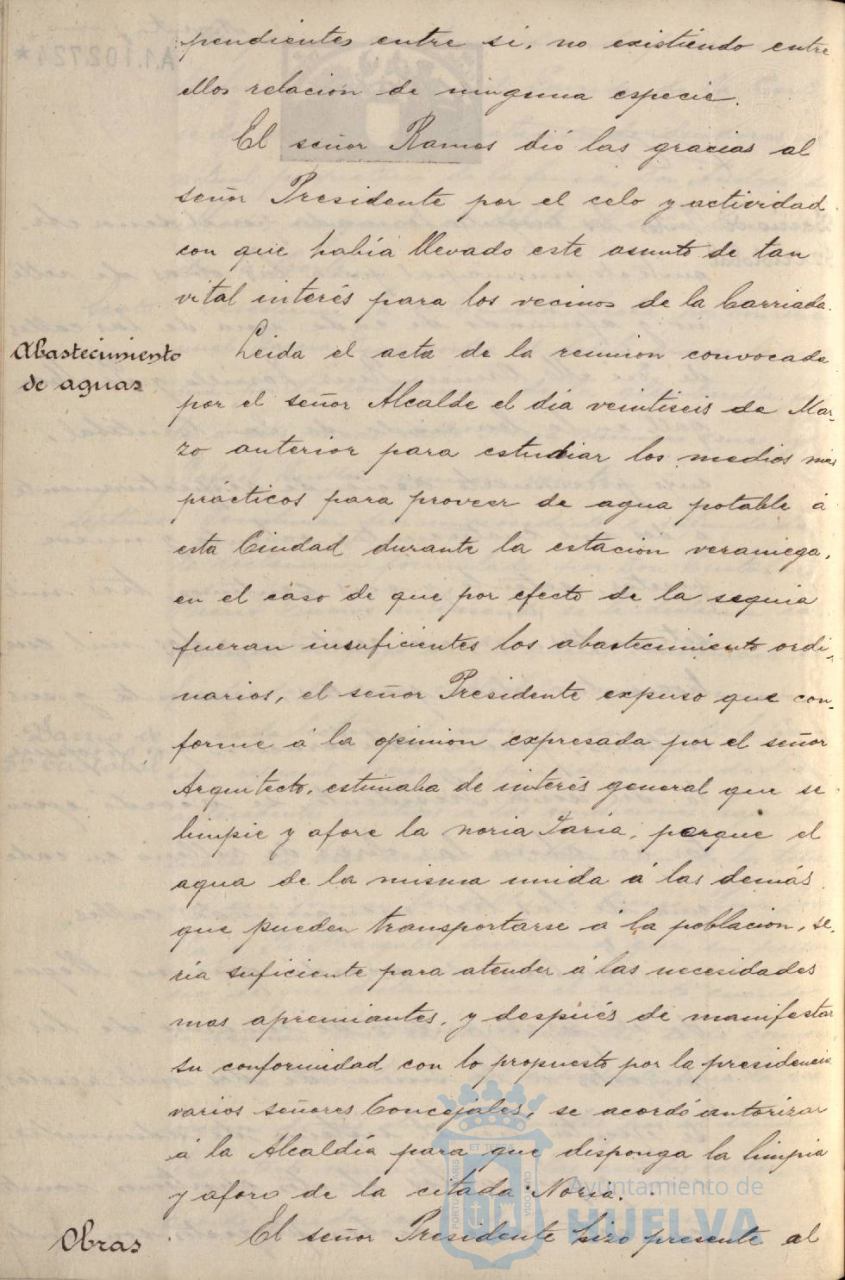 pendientes entre si, no existiendo entre
ellos relacion de ninguna especie.
El señor Ramos dió las gracias al
señor Presidente por el celo y actividad
con que había llevado este asunto de tan
vital interés para los vecinos de la barriada.
Abastecimiento
de aguas
Leida el acta de la reunion convocada
por el señor Alcalde el dia veintiseis de Mar-
zo anterior para estudiar los medios mas
prácticos para proveer de agua potable á
esta Ciudad durante la estacion veraniega,
en el caso de que por efecto de la sequia
fueran insuficientes los abastecimiento ordi-
narios, el señor Presidente expuso que con-
forme á la opinion expresada por el señor
Arquitecto, estimaba de interés general que se
limpie y afore la noria Jaria, porque el
agua de la misma unida á las demás
que pueden transportarse á la poblacion, se-
ria suficiente para atender á las necesidades
mas apremiantes, y después de manifestar
su conformidad con lo propuesto por la presidencia
varios señores Concejales, se acordó autorizar
á la Alcaldía para que disponga la limpia
y aforo de la citada Noria.
Obras
El señor Presidente hizo presente al
A1.102.724*
Ayuntamiento de
HUELVA